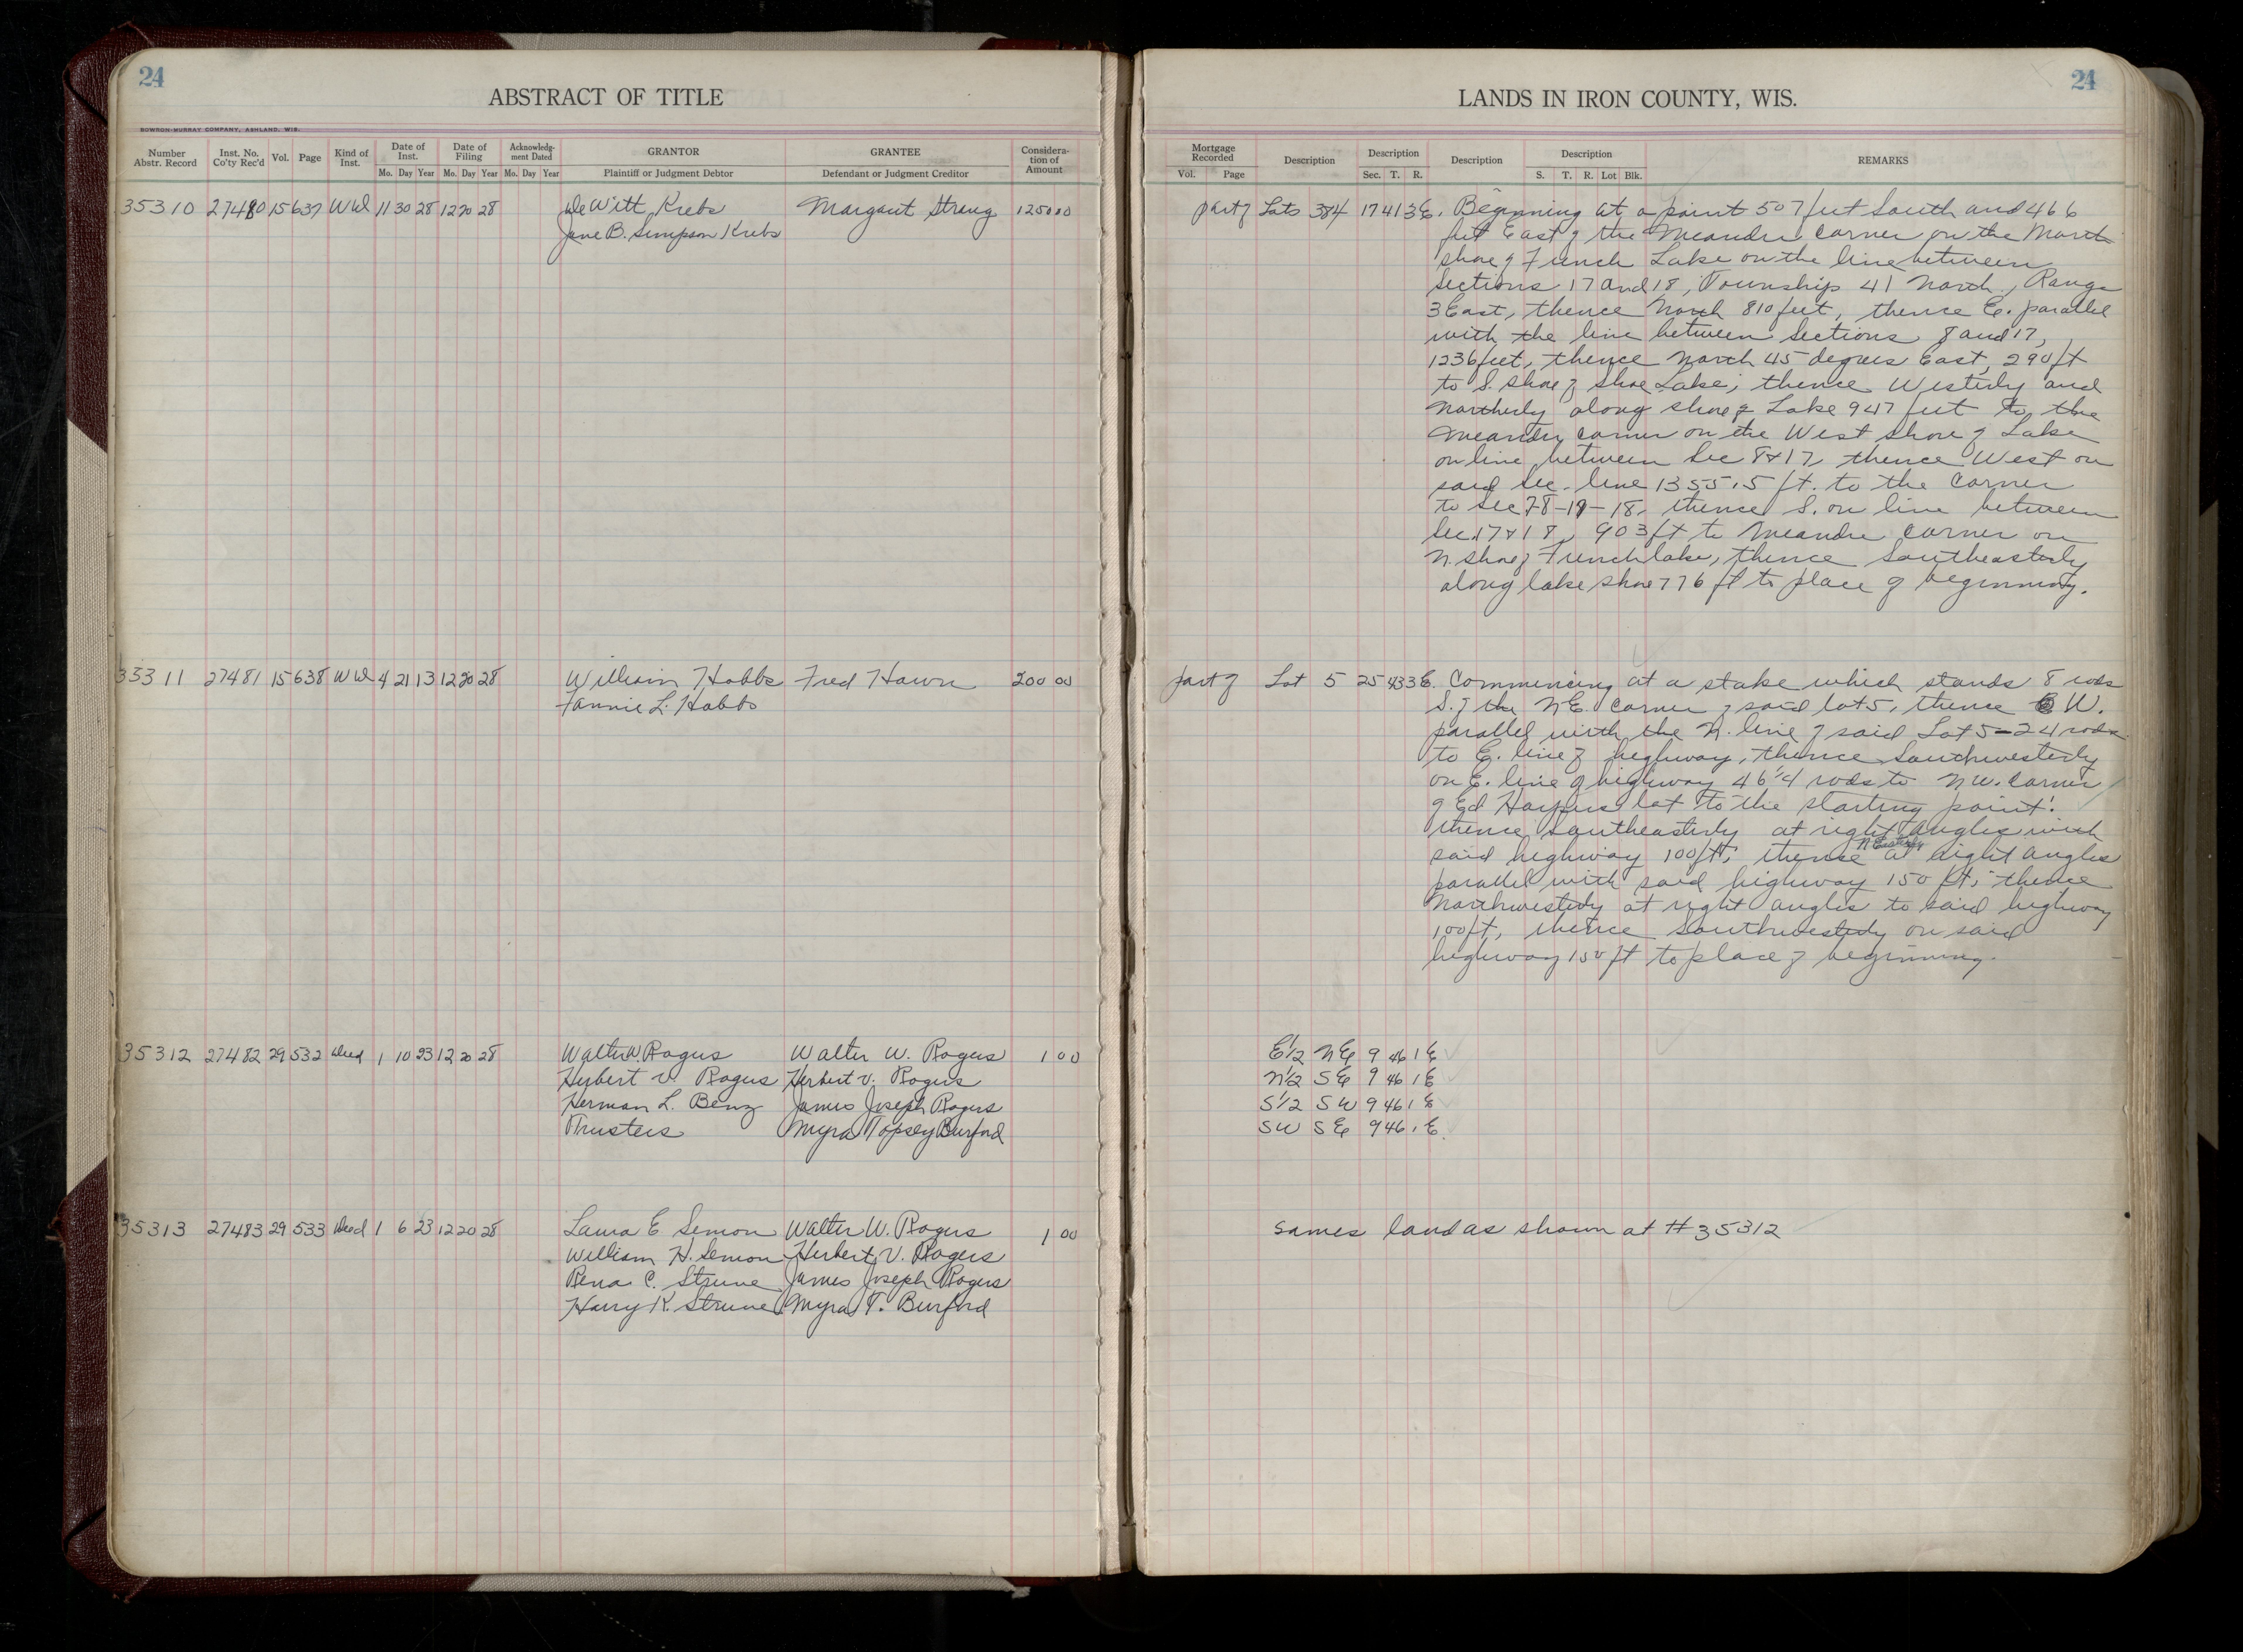 24
ABSTRACT OF TITLE
BOWRON-MURRAY COMPANY, ASHLAND, WIS.
Number Abstr. Record | Inst. No. Co'ty Rec'd | Vol. | Page | Kind of Inst. | Date of Inst. Mo. Day Year | Date of Filing Mo. Day Year | Acknowledgment Dated Mo. Day Year | GRANTOR Plaintiff or Judgment Debtor | GRANTEE Defendant or Judgment Creditor | Consideration of Amount
35310 27480 15 637 WD 11 30 28 12 20 28 De Witt Krebs Margaret Strong 1250 00
Jane B. Simpson Krebs
35311 27481 15 638 WD 4 21 13 12 20 28 William Hobbs Fred Hawn 200 00
Fannie L. Hobbs
35312 27482 29 532 Deed 1 10 23 12 20 28 Walter W. Rogers Walter W. Rogers 1 00
Herbert V. Rogers Herbert V. Rogers
Herman L. Benz James Joseph Rogers
Trustees Myra Topsey Burford
35313 27483 29 533 Deed 1 6 23 12 20 28 Laura E Semon Walter W. Rogers 1 00
William H. Semon Herbert V. Rogers
Rena C. Strune James Joseph Rogers
Harry K. Strune Myra T. Burford
24
LANDS IN IRON COUNTY, WIS.
Mortgage Recorded Vol. Page | Description | Description Sec. T. R. | Description | Description S. T. R. Lot Blk. | REMARKS
part of Lots 3&4 17 41 3E. Beginning at a point 507 feet South and 466
feet East of the Meander corner on the North
shore of French Lake on the line between
Sections 17 and 18, Township 41 North, Range
3 East, thence North 810 feet, thence E. parallel
with the line between Sections 8 and 17,
1236 feet, thence North 45 degrees East, 290 ft
to S. shore of Shoe Lake; thence Westerly and
Northerly along shore of Lake 947 feet to the
meander corner on the West shore of Lake
on line between Sec 8 & 17, thence West on
said Sec. line 1355.5 ft. to the corner
to Sec 7-8-17-18, thence S. on line between
Sec. 17 & 18, 903 ft to Meander corner on
N. shore of French lake, thence Southeasterly
along lake shore 776 ft to place of beginning.
part of Lot 5 25 43 3E. Commencing at a stake which stands 8 rods
S. of the NE. corner of said lot 5, thence W.
parallel with the N. line of said Lot 5-24 rods
to E. line of highway, thence Southwesterly
on E. line of highway 46 1/4 rods to NW. corner
of Ed lot to the starting point.
thence Southeasterly at right angles with
said highway 100 ft, thence N Easterly at right angles
parallel with said highway 150 ft, thence
Northwesterly at right angles to said highway
100 ft, thence Southwesterly on said
highway 150 ft to place of beginning.
E 1/2 NE 9 46 1 E
N 1/2 SE 9 46 1 E
S 1/2 SW 9 46 1 E
SW SE 9 46 1 E
Sames land as shown at # 35312